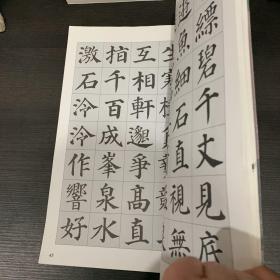 縹碧千丈見底
遊魚細石直視無
互相軒邈爭高直
指千百成峯泉水
激石泠泠作響好